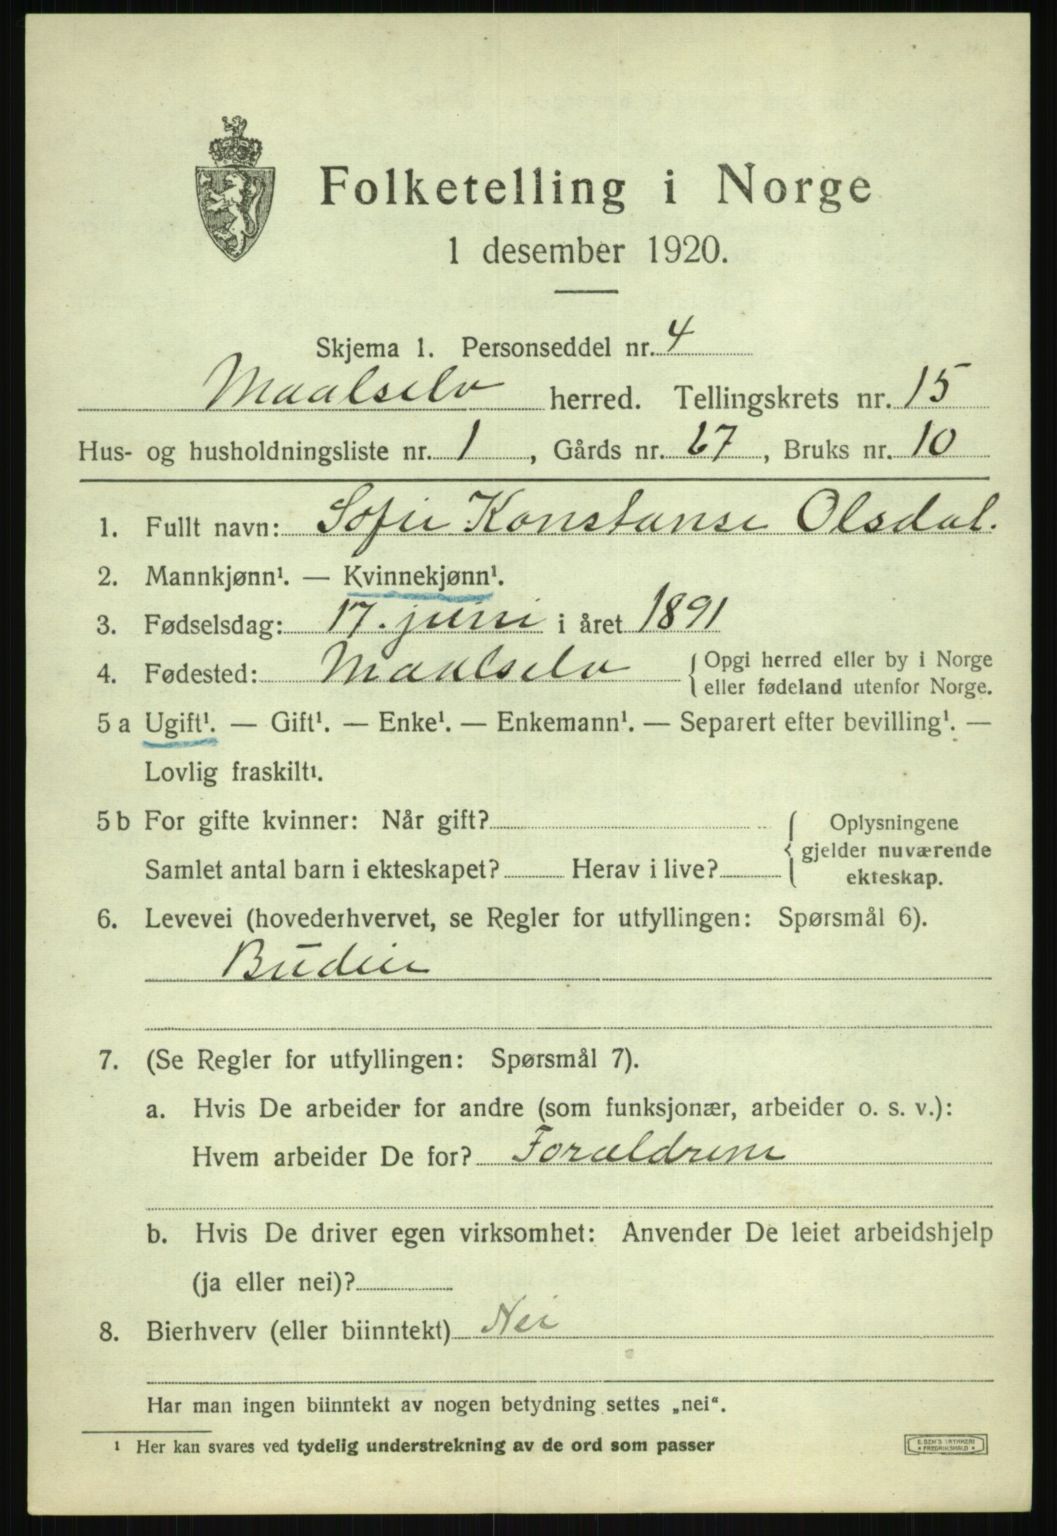 Folketelling i Norge
1 desember 1920.
Skjema 1. Personseddel nr. 4
Maalselv herred. Tellingskrets nr. 15
Hus- og husholdningsliste nr. 1, Gårds nr. 67, Bruks nr. 10
1. Fullt navn: Sofie Konstanse Olsdal.
2. Mannkjønn¹. — Kvinnekjønn¹.
3. Fødselsdag: 17. juni i året 1891
4. Fødested: Maalselv { Opgi herred eller by i Norge
eller fødeland utenfor Norge.
5 a Ugift¹. — Gift¹. — Enke¹. — Enkemann¹. — Separert efter bevilling¹. —
Lovlig fraskilt¹.
5 b For gifte kvinner: Når gift? { Oplysningene
gjelder nuværende
Samlet antal barn i ekteskapet? Herav i live? ekteskap.
6. Levevei (hovederhvervet, se Regler for utfyllingen: Spørsmål 6).
Budeie
7. (Se Regler for utfyllingen: Spørsmål 7).
a. Hvis De arbeider for andre (som funksjonær, arbeider o. s. v.):
Hvem arbeider De for? Foraldrene
b. Hvis De driver egen virksomhet: Anvender De leiet arbeidshjelp
(ja eller nei)?
8. Bierhverv (eller biinntekt) Nei
Har man ingen biinntekt av nogen betydning settes „nei“.
¹ Her kan svares ved tydelig understrekning av de ord som passer
FREDRIKSHALD